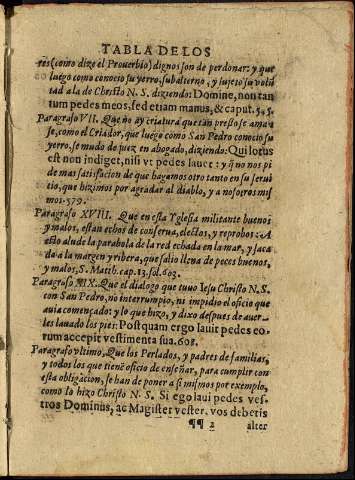 TABLA DE LOS
res (como dize el Prouerbio) dignos son de perdonar: y que
luego como conocio su yerro, subalterno, y sujeto su volũ
tad a la de Christo N. S. diziendo: Domine, non tan
tum pedes meos, sed etiam manus, & caput. 5,5.
Paragrafo VII. Que no ay criatura que tan presto se ama
se, como el Criador, que luego como San Pedro conocio su
yerro, se mudo de juez en abogado, diziendo: Qui lotus
est non indiget, nisi vt pedes lauet: y q̃ no nos pi
de mas satisfacion de que hagamos otro tanto en su serui
tio, que hizimos por agradar al diablo, y a nosotros mis
mos. 579.
Paragrafo XVIII. Que en esta Yglesia militante buenos
y malos, estan echos de conserua, electos, y reprobos: A
esto alude la parabola de la red echada en la mar, y saca
da a la margen y ribera, que salio llena de peces buenos,
y malos, S. Matth. cap. 13. fol. 603.
Paragrafo MIX. Que el dialogo que tuuo Iesu Christo N. S.
con San Pedro, no interrumpio, ni impidio el oficio que
auia començado: y lo que hizo, y dixo despues de auer-
les lauado los pies: Postquam ergo lauit pedes eo-
rum accepit vestimenta sua. 608.
Paragrafo vltimo, Que los Perlados, y padres de familias,
y todos los que tienẽ oficio de enseñar, para cumplir con
esta obligacion, se han de poner a si mismos por exemplo,
como lo hizo Christo N. S. Si ego laui pedes ves-
tros Dominus, ac Magister vester, vos debetis
¶¶ 2 alter